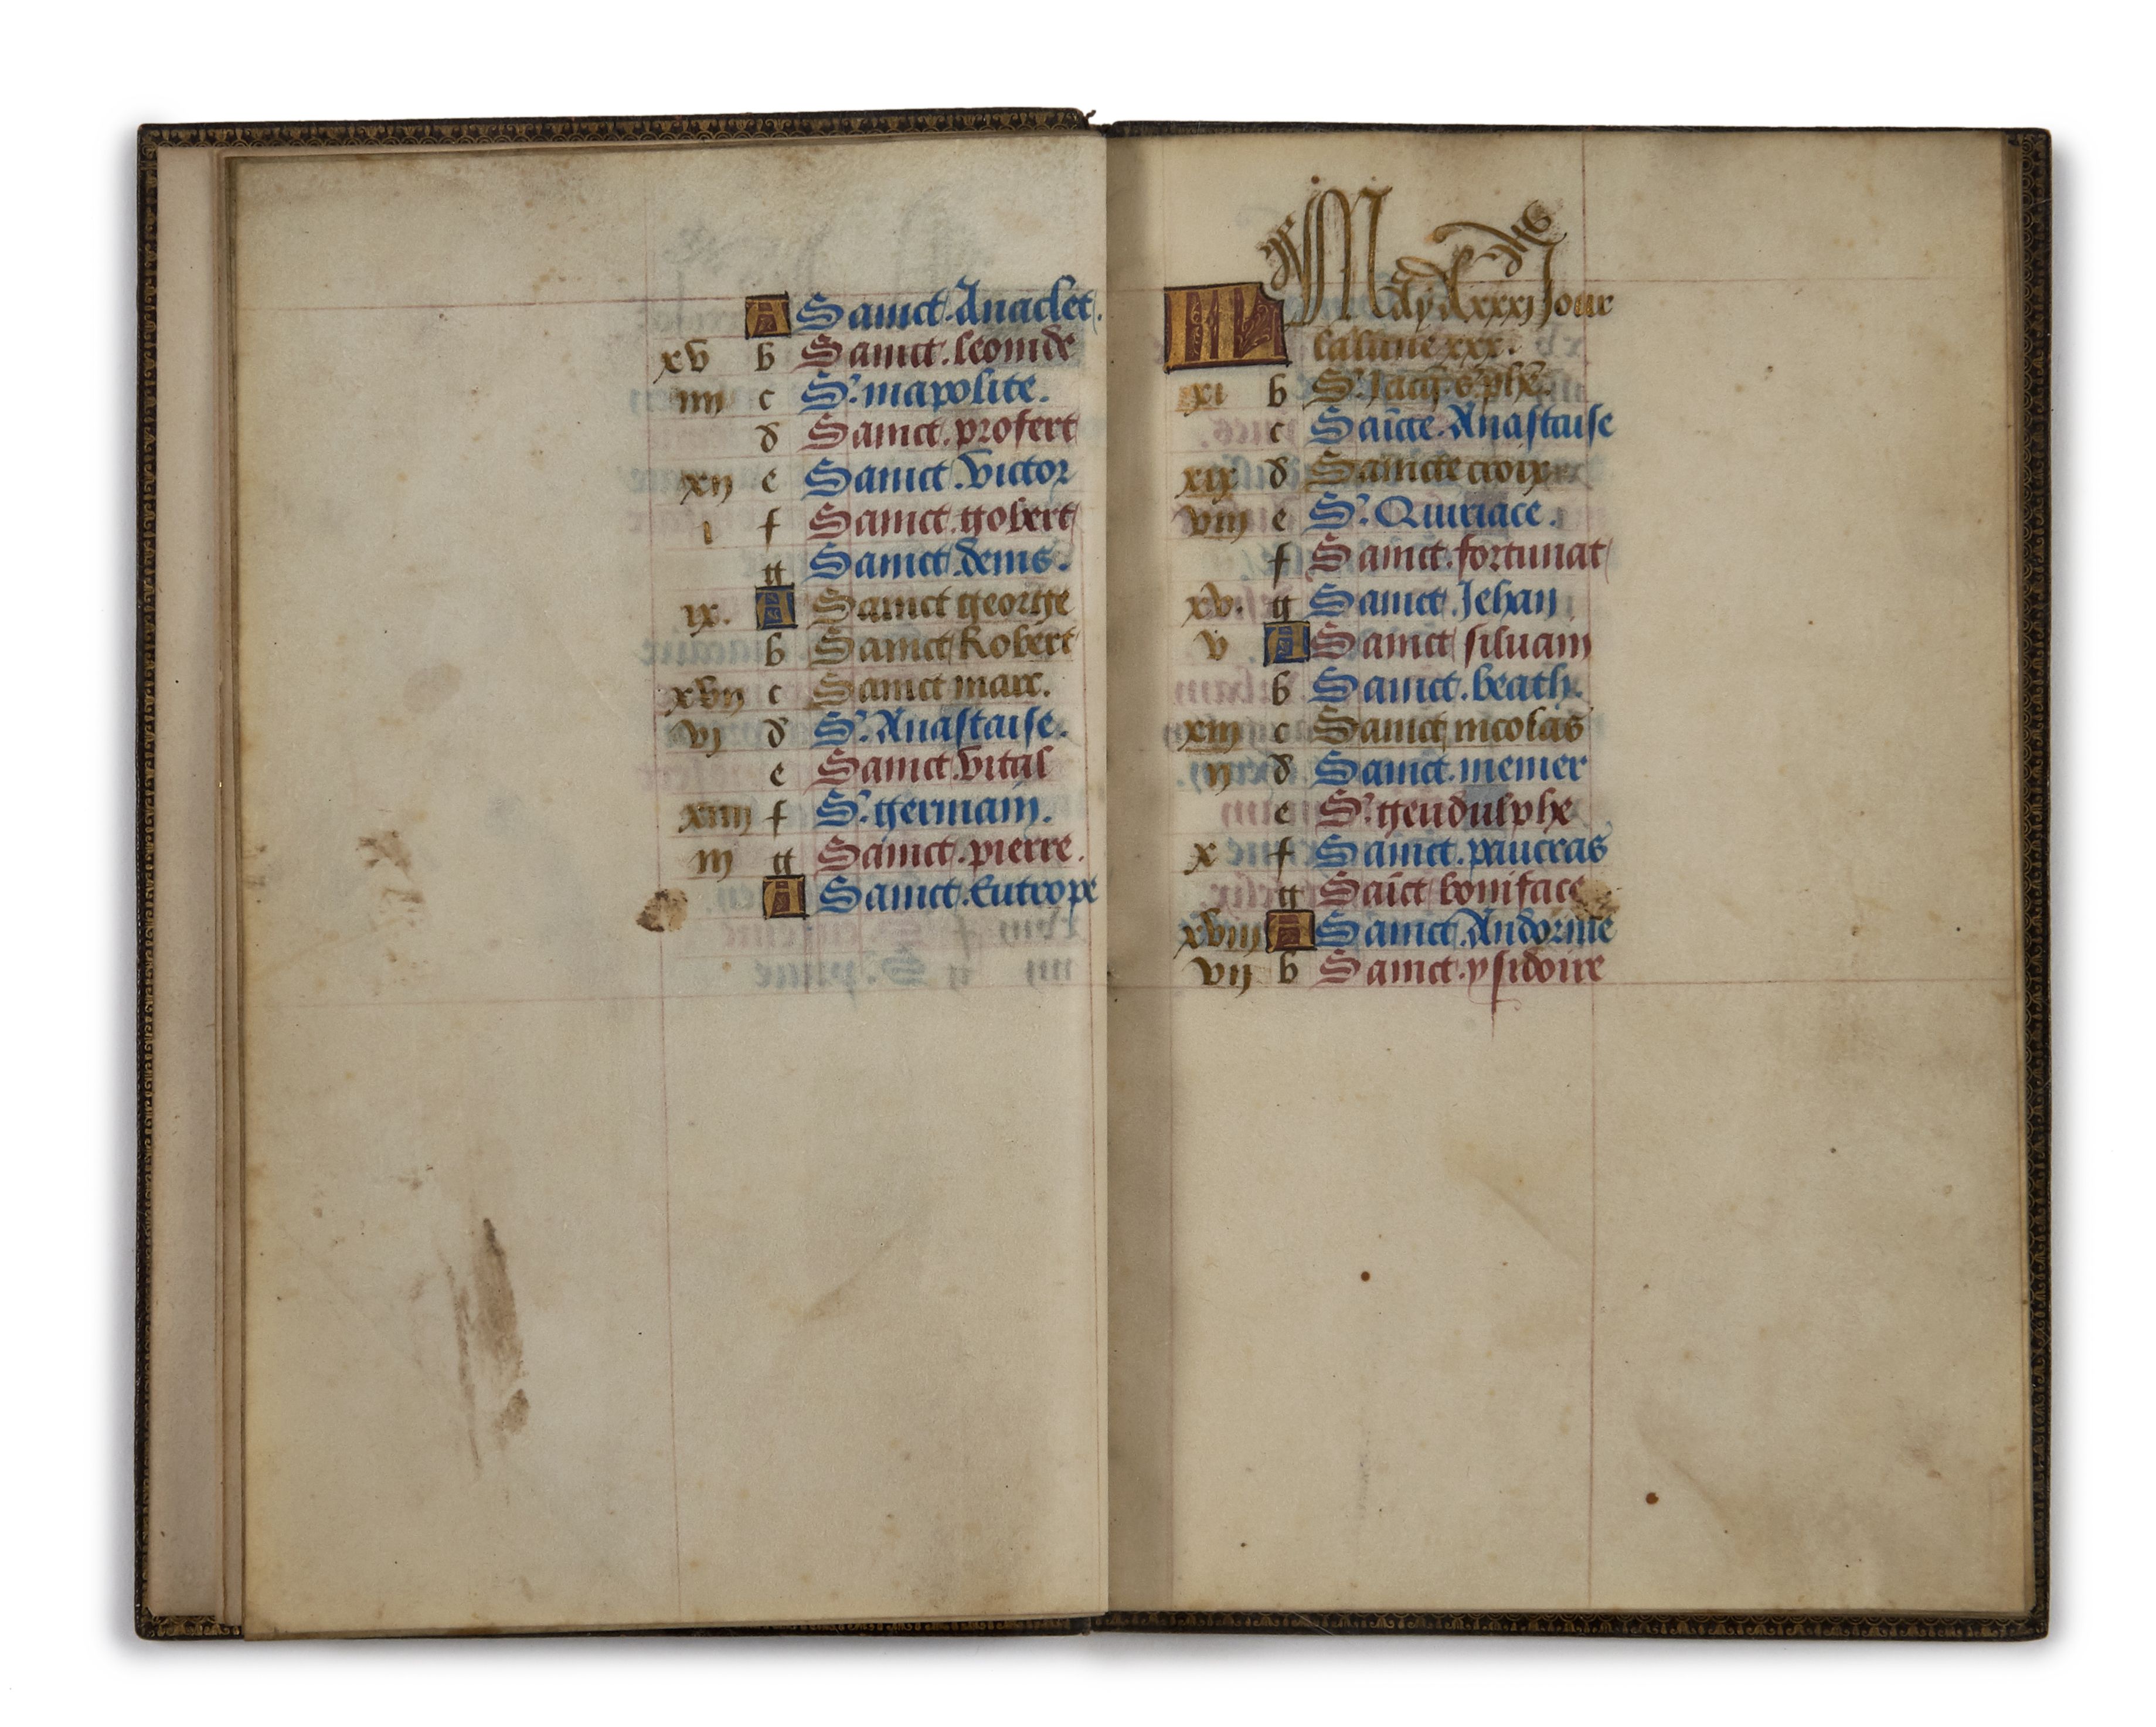 A Sainct. Anaclet.
xv b Sainct. leonide
iiij c St. mapolite.
d Sainct. profert
xij e Sainct. victor
i f Sainct. gobert
g Sainct. denis.
ix. A Sainct george
b Sainct Robert
xvij c Sainct marc.
vj d St. Anastaise.
e Sainct. vital
xiiij f St. germain.
iij g Sainct. pierre.
A Sainct. Eutrope
May A xxxj Jour
la lune xxx.
xi b St. Jacq. s. phe.
c Saīcte. Anastaise
xix d Saincte croix
viij e St. Quiriace.
f Sainct. fortunat
xv. g Sainct. Jehan
v A Sainct siluain
b Sainct. beath.
xiij c Sainct nicolas
ij d Sainct. memer
e St. gendulphe
x f Sainct. pancras
g Saīct boniface
xviij A Sainct. Andorine
vij b Sainct. ysidoire